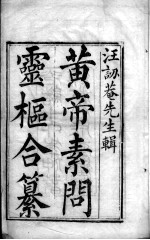 汪訒菴先生輯
黃帝素問
靈樞合纂